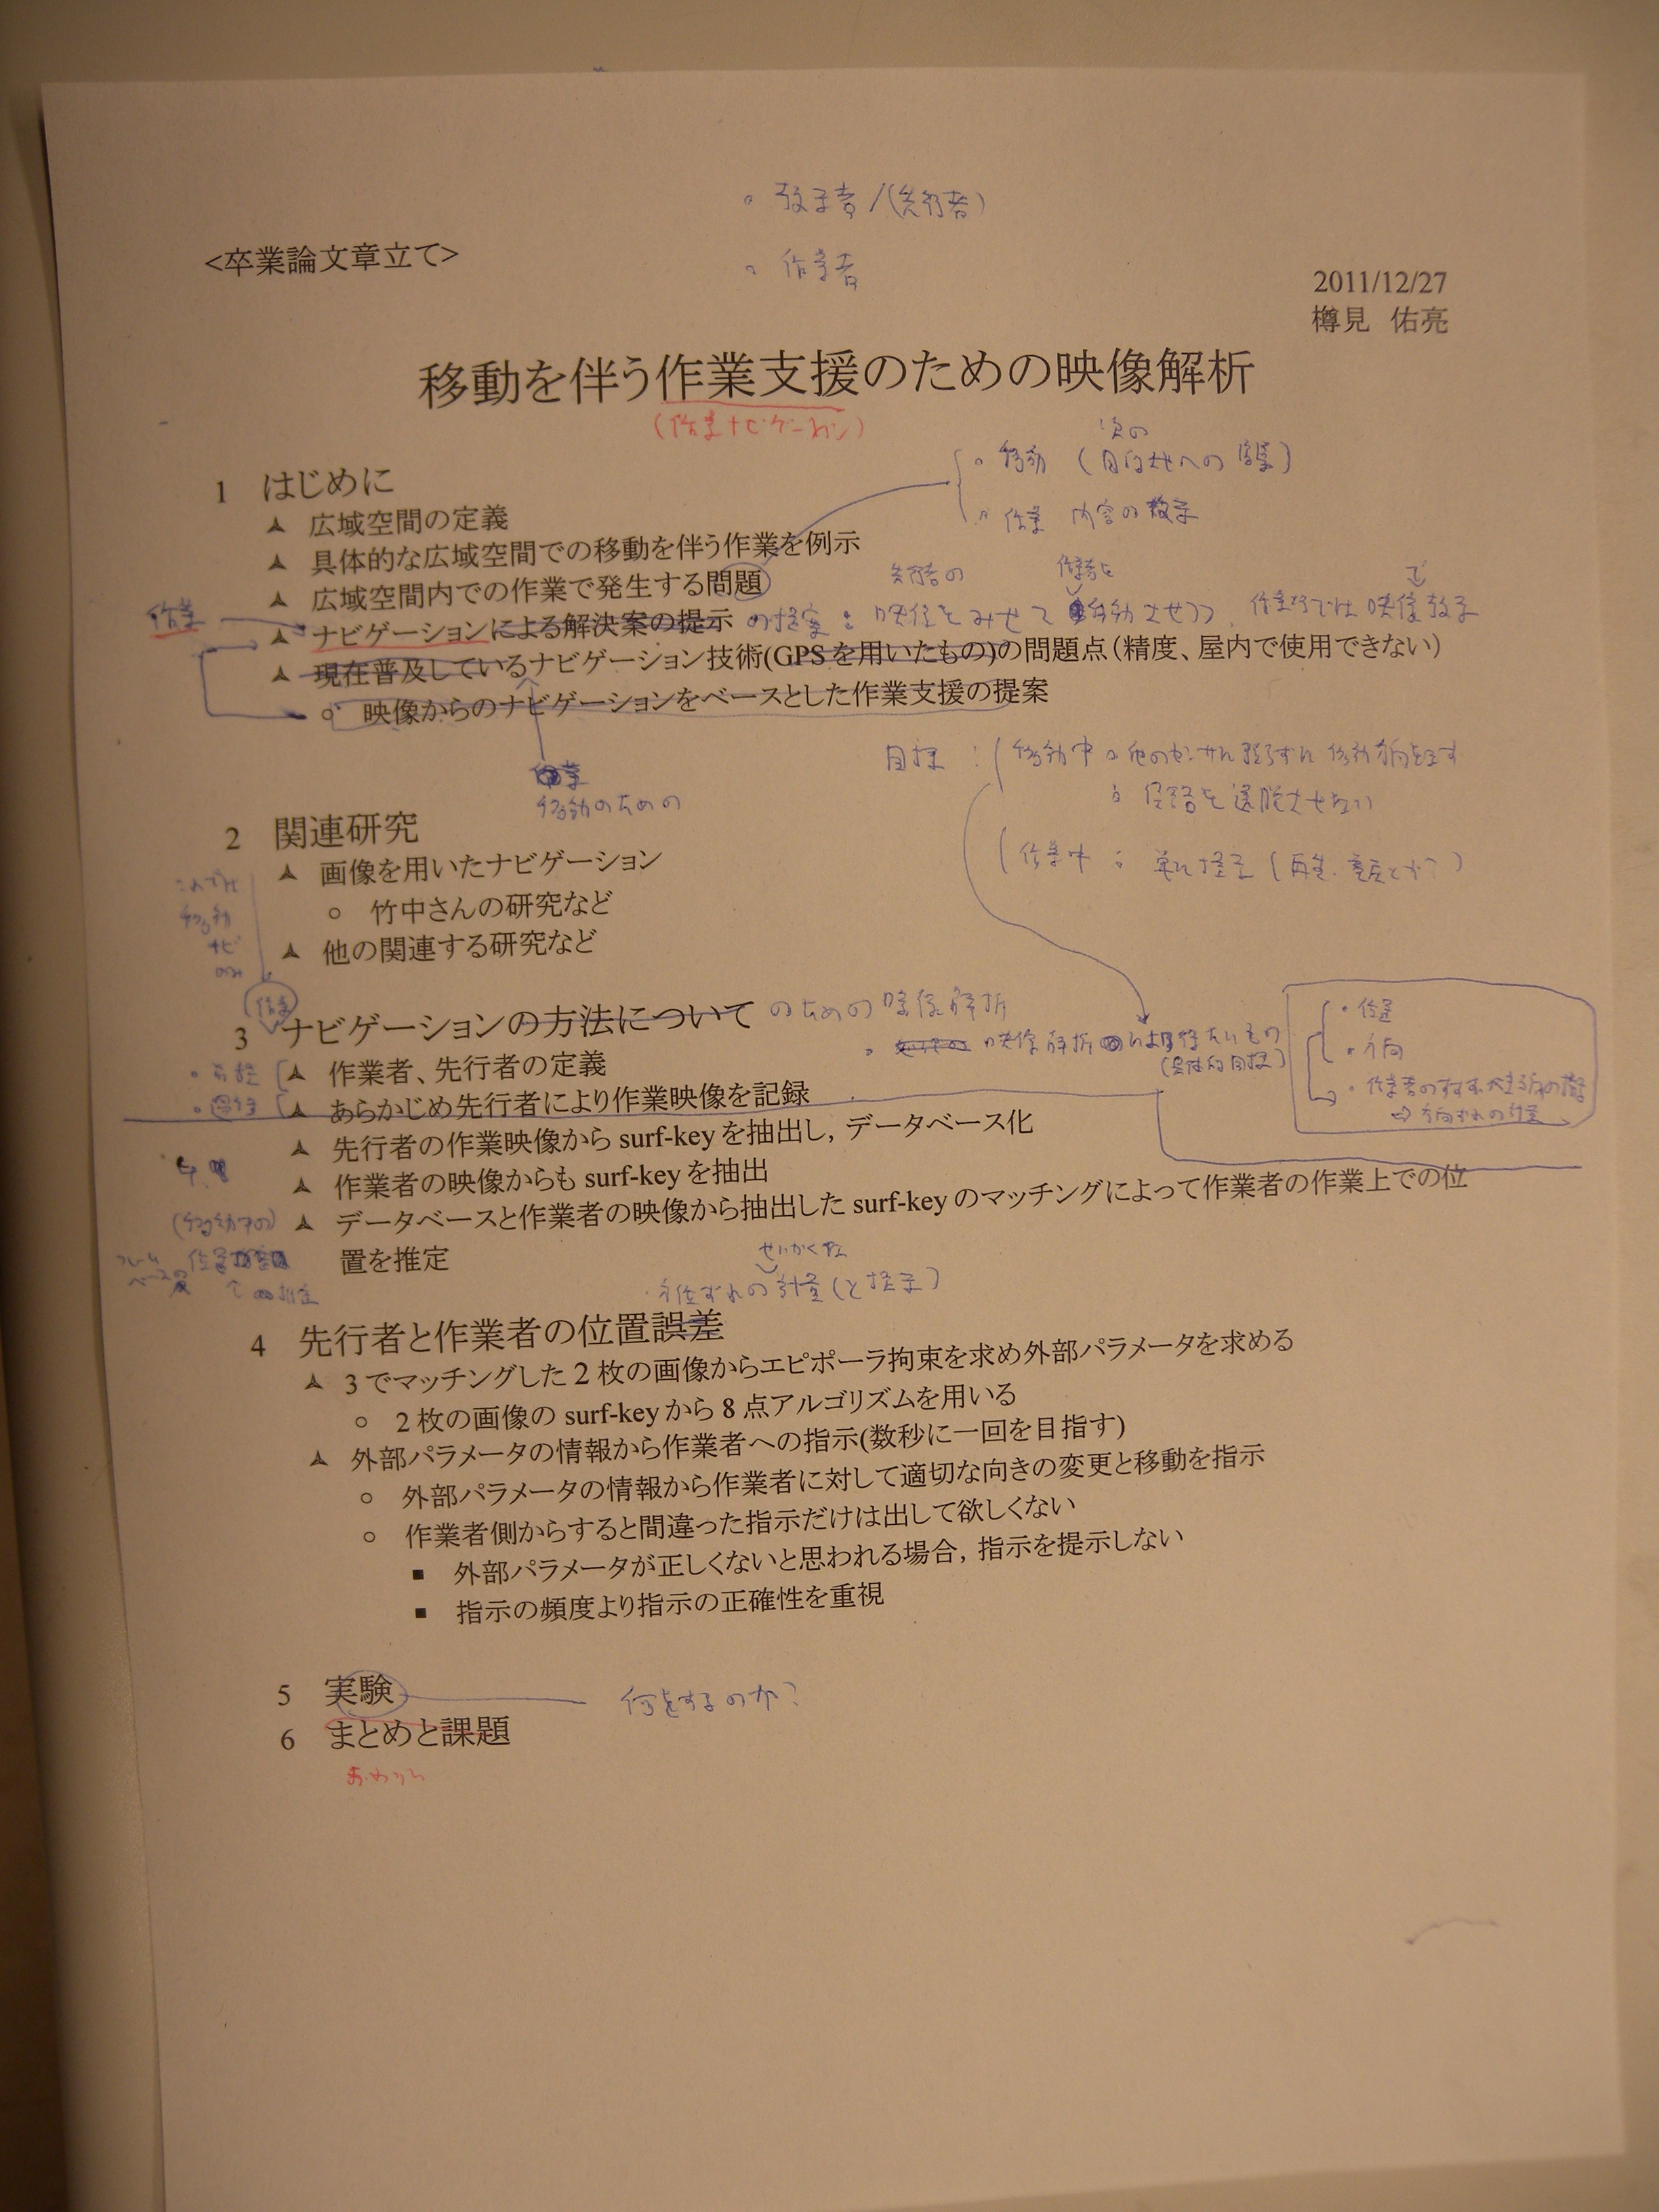 。教示者/(先行者)
<卒業論文章立て>
。作業者
2011/12/27
樽見 佑亮
移動を伴う作業支援のための映像解析
(作業ナビゲーション)
1 はじめに
次の
。移動 (目的地への誘導)
➢ 広域空間の定義
。作業 内容の教示
➢ 具体的な広域空間での移動を伴う作業を例示
➢ 広域空間内での作業で発生する問題
先行者の 作業者を で
作業
➢ ナビゲーションによる解決案の提示 の提案: 映像をみせて 移動させつつ、作業 では 映像教示
➢ 現在普及しているナビゲーション技術(GPSを用いたもの)の問題点(精度、屋内で使用できない)
○ 映像からのナビゲーションをベースとした作業支援の提案
作業
移動のための
目標:
移動中。他のセンサに頼らずに 移動方向を示す
。経路を逸脱させない
作業中:
2 関連研究
➢ 画像を用いたナビゲーション
○ 竹中さんの研究など
➢ 他の関連する研究など
これでは
移動
ナビ
のみ
作業
3 ナビゲーションの方法について のための映像解析
。映像解析により得たいもの
(具体的目標)
・位置
・方向
・作業者のすすむべき方向の
⇒ 方向ずれの計算
➢ 作業者、先行者の定義
➢ あらかじめ先行者により作業映像を記録
➢ 先行者の作業映像から surf-key を抽出し, データベース化
4.
➢ 作業者の映像からも surf-key を抽出
(移動中の)
➢ データベースと作業者の映像から抽出した surf-key のマッチングによって作業者の作業上での位
置を推定
フレーム
ベースの 位置
推定
せいかくな
ずれの計算(と提示)
4 先行者と作業者の位置誤差
➢ 3でマッチングした2枚の画像からエピポーラ拘束を求め外部パラメータを求める
○ 2枚の画像の surf-key から8点アルゴリズムを用いる
➢ 外部パラメータの情報から作業者への指示(数秒に一回を目指す)
○ 外部パラメータの情報から作業者に対して適切な向きの変更と移動を指示
○ 作業者側からすると間違った指示だけは出して欲しくない
■ 外部パラメータが正しくないと思われる場合, 指示を提示しない
■ 指示の頻度より指示の正確性を重視
5 実験 何をするのか?
6 まとめと課題
おわりに